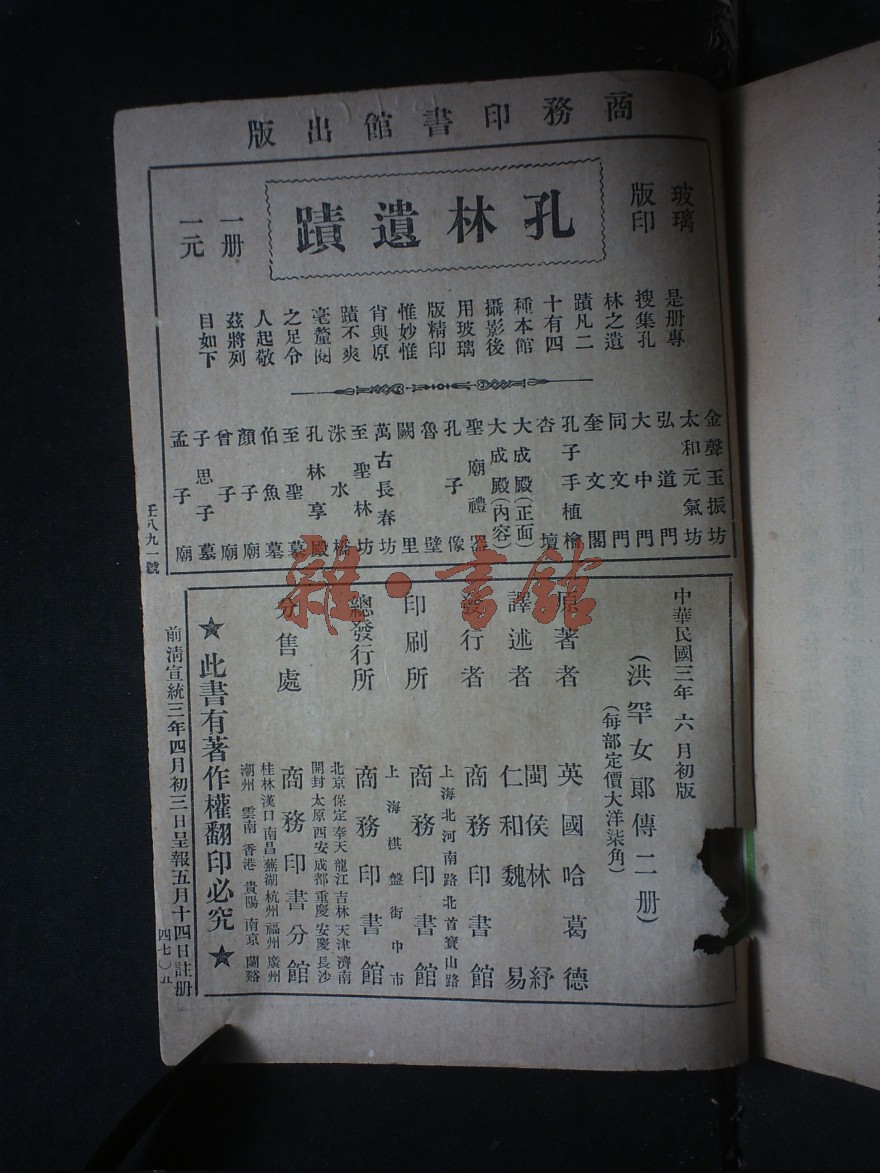 商務印書館出版
玻璃
版印
孔林遺蹟
一册
一元
是册專
搜集孔
林之遺
蹟凡二
十有四
種本館
攝影後
用玻璃
版精印
惟妙惟
肖與原
蹟不爽
毫釐閱
之足令
人起敬
茲將列
目如下
金聲玉振坊
太和元氣坊
弘道門
大中門
同文門
奎文閣
孔子手植檜
杏壇
大成殿(正面)
大成殿(內容)
聖廟禮器
孔子像
魯壁
闕里
萬古長春坊
至聖林坊
洙水橋
孔林享殿
至聖墓
伯魚墓
顏子廟
曾子廟
子思子墓
孟子廟
壬八九一號
中華民國三年六月初版
(洪罕女郎傳二册)
(每部定價大洋柒角)
原著者 英國哈葛德
譯述者 閩侯林紓
仁和魏易
發行者 商務印書館
印刷所 上海北河南路北首寶山路
商務印書館
總發行所 上海棋盤街中市
商務印書館
分售處 商務印書分館
北京保定奉天龍江吉林天津濟南
開封太原西安成都重慶安慶長沙
桂林漢口南昌蕪湖杭州福州廣州
潮州雲南香港貴陽南京蘭谿
★此書有著作權翻印必究★
前清宣統三年四月初三日呈報五月十四日註册
四七〇五
雜·書館